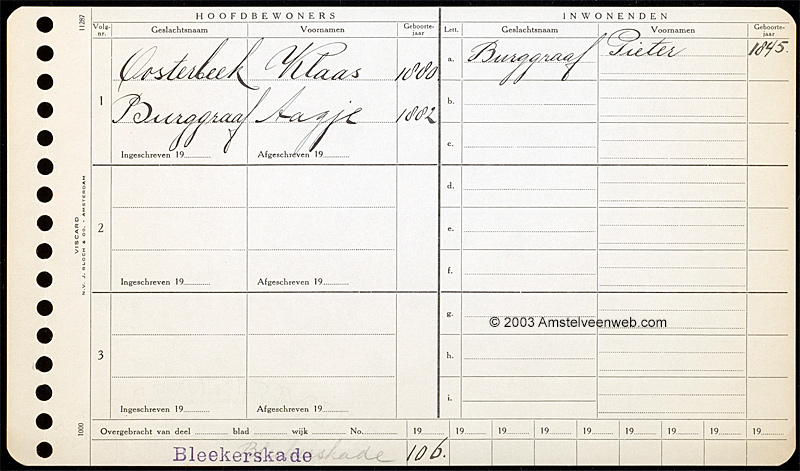 HOOFDBEWONERS
INWONENDEN
Volg-nr. Geslachtsnaam Voornamen Geboorte-jaar
Lett. Geslachtsnaam Voornamen Geboorte-jaar
1
Oosterbeek Klaas 1880
Burggraaf Aagje 1882
Ingeschreven 19 Afgeschreven 19
2
Ingeschreven 19 Afgeschreven 19
3
Ingeschreven 19 Afgeschreven 19
a. Burggraaf Pieter 1845.
b.
c.
d.
e.
f.
g.
© 2003 Amstelveenweb.com
h.
i.
Overgebracht van deel blad wijk No. 19 19 19 19 19 19 19 19 19
Bleekerskade 106.
11287
VISCARD
N.V. J. BLOCH & CO. - AMSTERDAM
1000